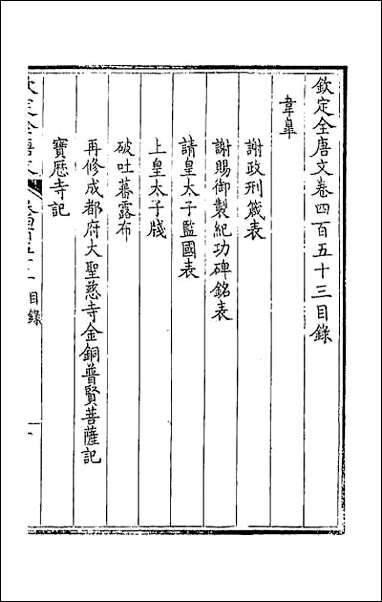 欽定全唐文卷四百五十三目錄
韋臯
謝政刑箴表
謝賜御製紀功碑銘表
請皇太子監國表
上皇太子牋
破吐蕃露布
再修成都府大聖慈寺金銅普賢菩薩記
寶歷寺記
目錄